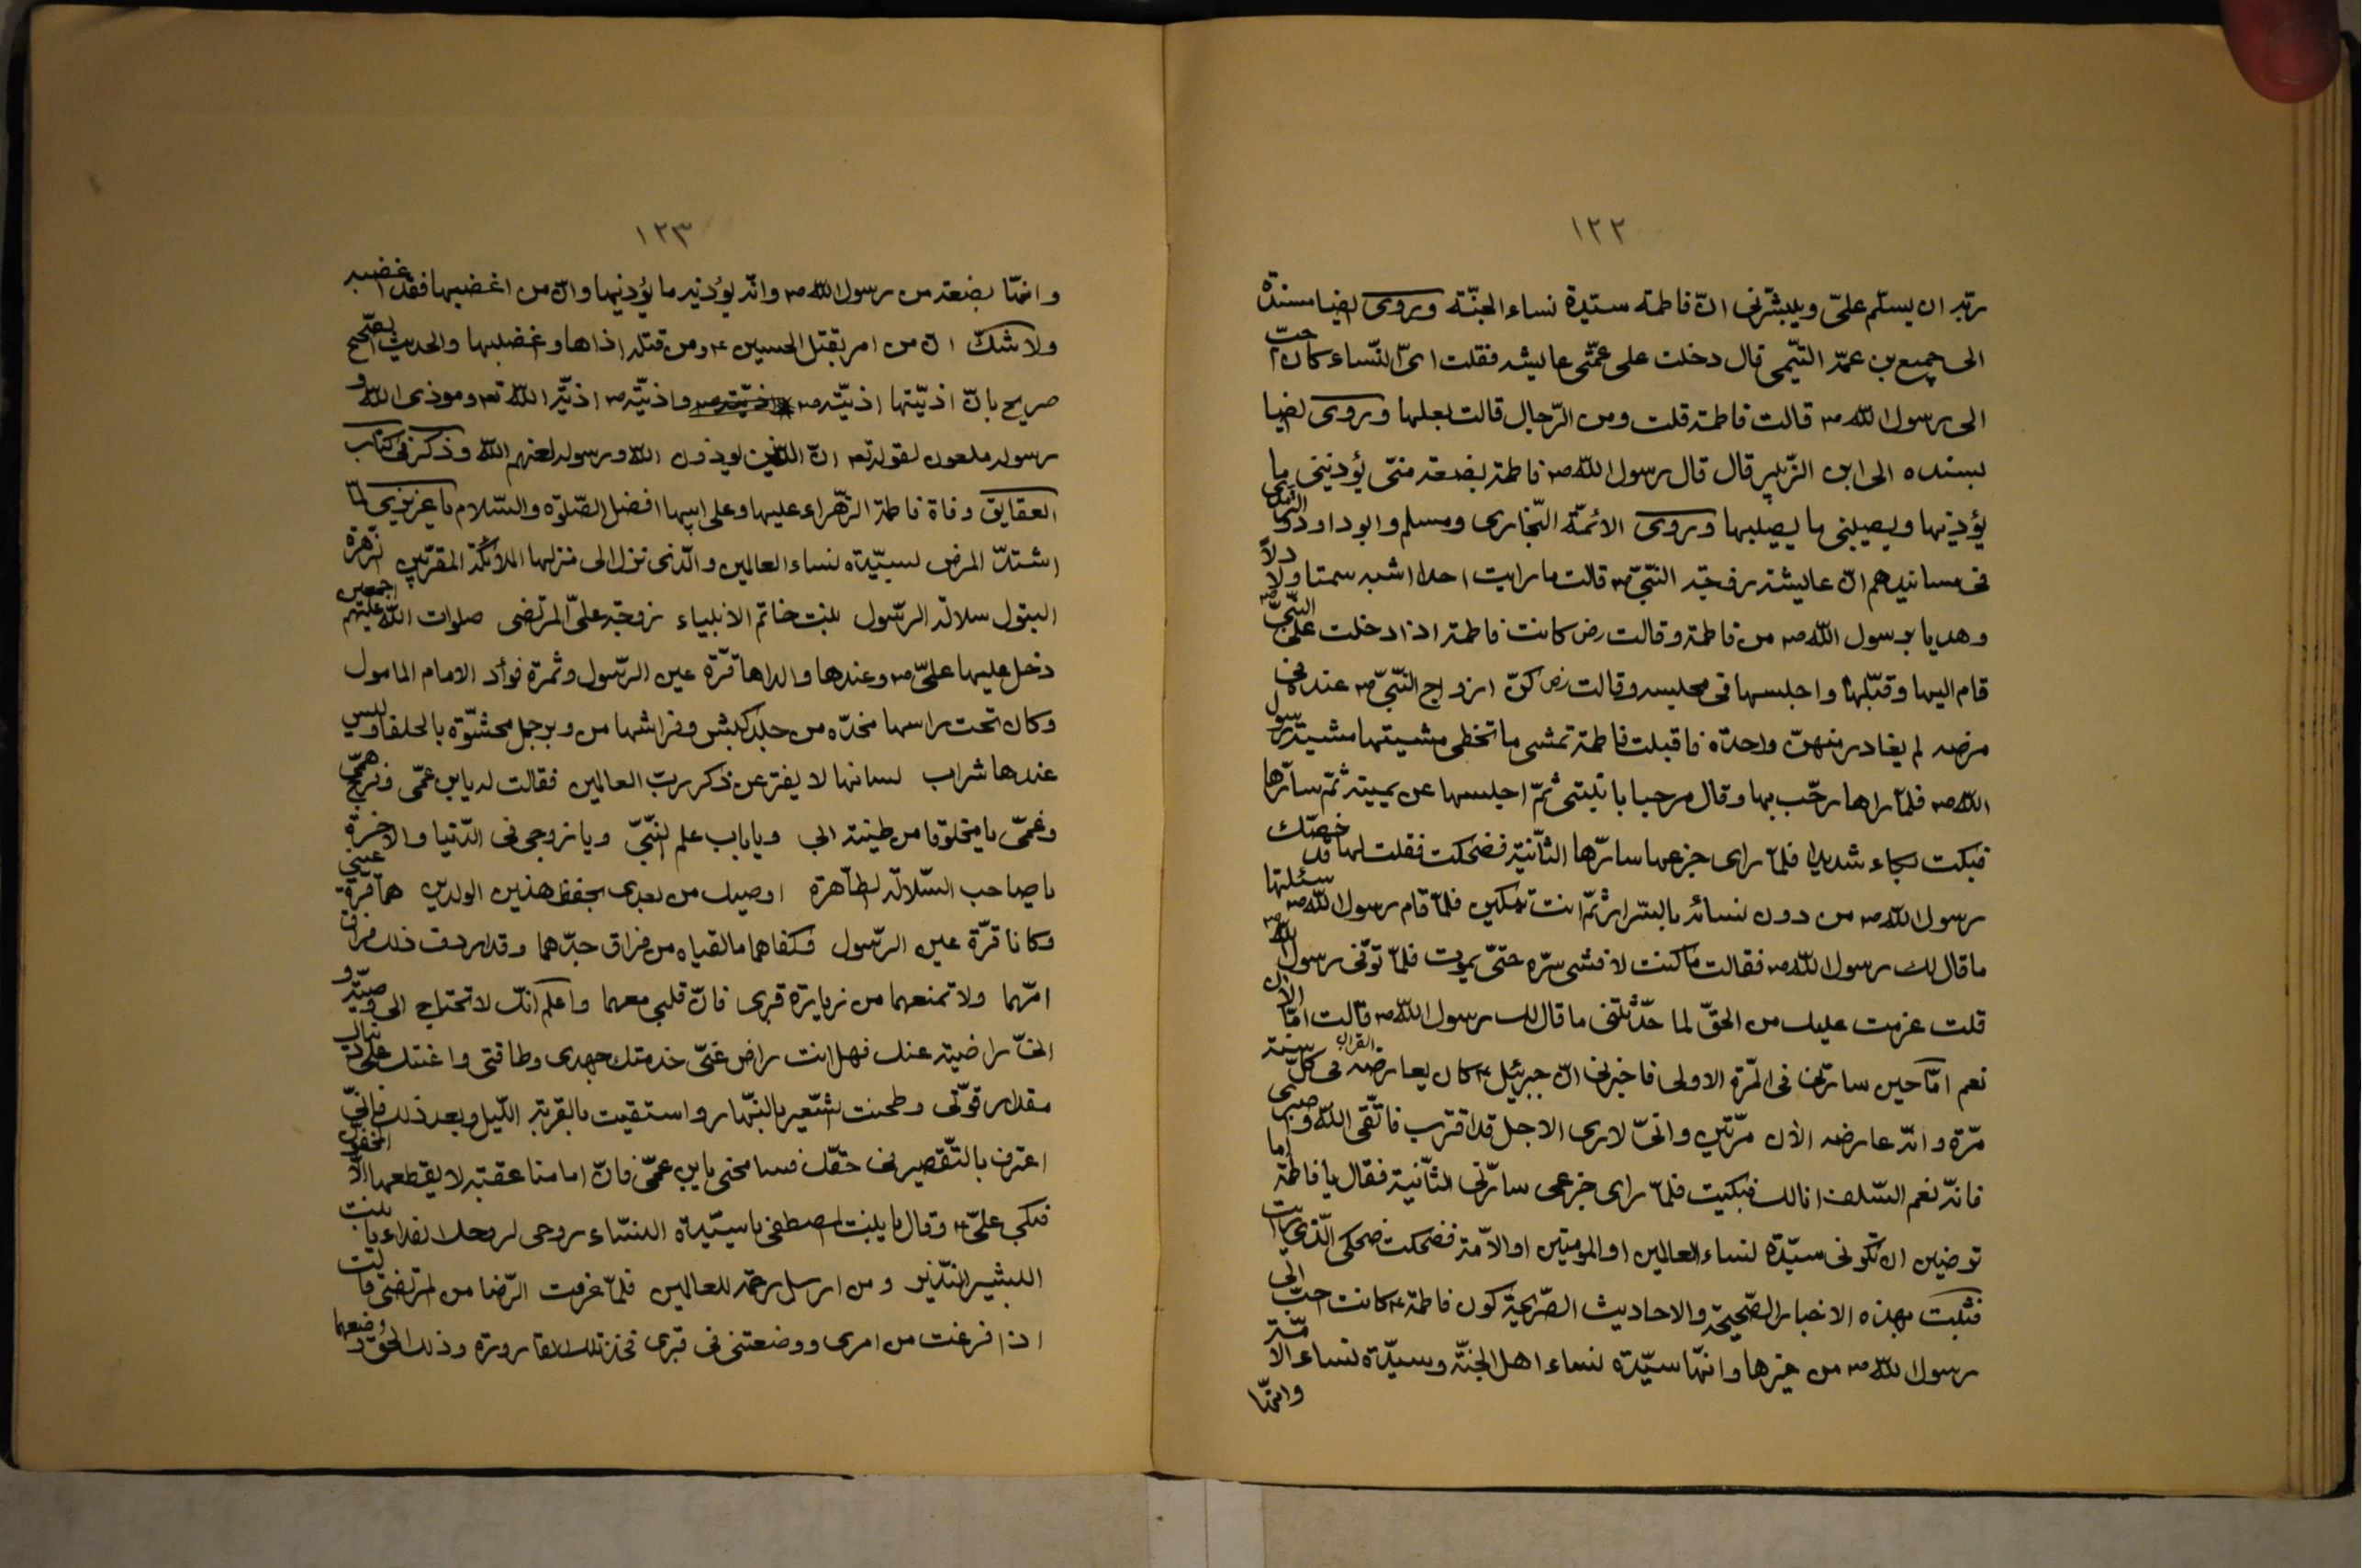 ١٢٢
ربّه ان يسلّم علىّ ويبشّرنى انّ فاطمه سيّدة نساء الجنّة وروى ايضا مسندة
الى جميع بن عمر التيمى قال دخلت على عمّتى عايشه فقلت اىّ النّساء كان احبّ
الى رسول اللّه ص قالت فاطمه قلت ومن الرّجال قالت بعلها وروى ايضا
بسنده الى ابن الزّبير قال قال رسول اللّه ص فاطمة بضعة منّى يؤذينى ما
يؤذيها ويصيبنى ما يصيبها وروى الائمّة البخارى ومسلم وابو داود
فى مسانيدهم انّ عايشة زوجة النّبىّ ص قالت ما رايت احدا اشبه سمتا ولا دلّاً
وهديا برسول اللّه ص من فاطمة وقالت رض كانت فاطمة اذا دخلت على النّبىّ ص
قام اليها وقبّلها واجلسها فى مجلسه وقالت رض كنّ ازواج النّبىّ ص عنده فى
مرضه لم يغادر منهنّ واحدة فاقبلت فاطمة تمشى ما تخطى مشيتها مشية رسول
اللّه ص فلمّا راها رحّب بها وقال مرحبا بابنتى ثمّ اجلسها عن يمينه ثمّ سارّها
فبكت بكاء شديدا فلمّا راى جزعها سارّها الثّانية فضحكت فقلت لها قد خصّك
رسول اللّه ص من دون نسائه بالسّرار ثمّ انت تبكين فلمّا قام رسول اللّه ص سئلتها
ما قال لك رسول اللّه ص فقالت ما كنت لافشى سرّه حتّى يموت فلمّا توفّى رسول اللّه ص
قلت عزمت عليك من الحقّ لما حدّثتنى ما قال لك رسول اللّه ص قالت امّا الآن
نعم امّا حين سارّنى فى المرّة الاولى فاخبرنى انّ جبرئيل ع كان يعارضه القران فى كلّ سنة
مرّة وانّه عارضه الآن مرّتين وانّى لا ارى الاجل قد اقترب فاتّقى اللّه واصبرى
فانّه نعم السّلف انا لك فبكيت فلمّا راى جزعى سارّنى الثّانية فقال يا فاطمة اما
ترضين ان تكونى سيّدة نساء العالمين او المؤمنين او الامّة فضحكت ضحكى الّذى رايت
فثبت بهذه الاخبار الصّحيحة والاحاديث الصّريحة كون فاطمة ع كانت احبّ الى
رسول اللّه ص من غيرها وانّها سيّدة نساء اهل الجنّة وسيّدة نساء الامّة
وانّها
١٢٣
وانّها بضعة من رسول اللّه ص وانّه يؤذيه ما يؤذيها وانّ من اغضبها فقد اغضبه
ولا شكّ انّ من امر بقتل الحسين ع ومن قتله اذاها وغضبها والحديث الصّحيح
صريح بانّ اذيّتها اذيّته ص واذيّته ص اذيّة اللّه تع وموذى اللّه و
رسوله ملعون لقوله تع انّ الّذين يوذون اللّه ورسوله لعنهم اللّه وذكر فى كتاب
العقايق وفاة فاطمة الزّهراء عليها وعلى ابيها افضل الصّلوة والسّلام يا عزيزى لمّا
اشتدّ المرض لسيّدة نساء العالمين والّذى نزل الى منزلها الملائكة المقرّبين زهرة
البتول سلالة الرّسول بنت خاتم الانبياء زوجة علىّ المرتضى صلوات اللّه عليهم اجمعين
دخل عليها علىّ ع وعندها والداها قرّة عين الرّسول وثمرة فواد الامام المامول
وكان تحت راسها مخدّه من جلد كبش وفراشها من وبر جمل محشوّة بالحلفا وليس
عندها شراب لسانها لا يفتر عن ذكر ربّ العالمين فقالت له يابن عمّى وفرّج همّى
وغمّى يا مخلوقا من طينة ابى ويا باب علم النّبىّ ويا زوجى فى الدّنيا والاخرة
يا صاحب السّلالة الطّاهرة اوصيك من بعدى بحفظ هذين الولدين هما قرّة عينى
وكانا قرّة عين الرّسول فكفاهما ما لقياه من فراق جدّهما وقد اردف ذلك فراق
امّهما ولا تمنعهما من زيارة قبرى فانّ قلبى معهما واعلم انّك لا تحتاج الى وصيّة و
انّى راضية عنك فهل انت راض عنّى خدمتك جهدى وطاقتى واعنتك على
مقدار قوّتى وطحنت الشّعير بالنّهار واستقيت بالقربة اللّيل وبعد ذلك فانّى
اعترف بالتّقصير فى حقّك فسامحنى يابن عمّى فانّ امامنا عقبة لا يقطعها الّا المخفّون
فبكى علىّ ع وقال يا بنت المصطفى يا سيّدة النساء روحى لروحك الفداء يا بنت
البشير النّذير ومن ارسل رحمة للعالمين فلمّا عرفت الرّضا من المرتضى قالت
اذا فرغت من امرى ووضعتنى فى قبرى فخذ تلك القارورة وذلك الحقّ وضعهما